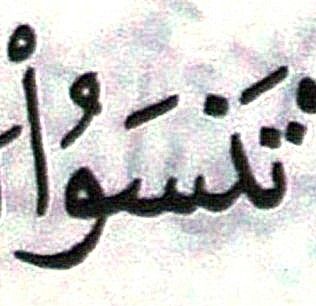 تَنسَوُاْ